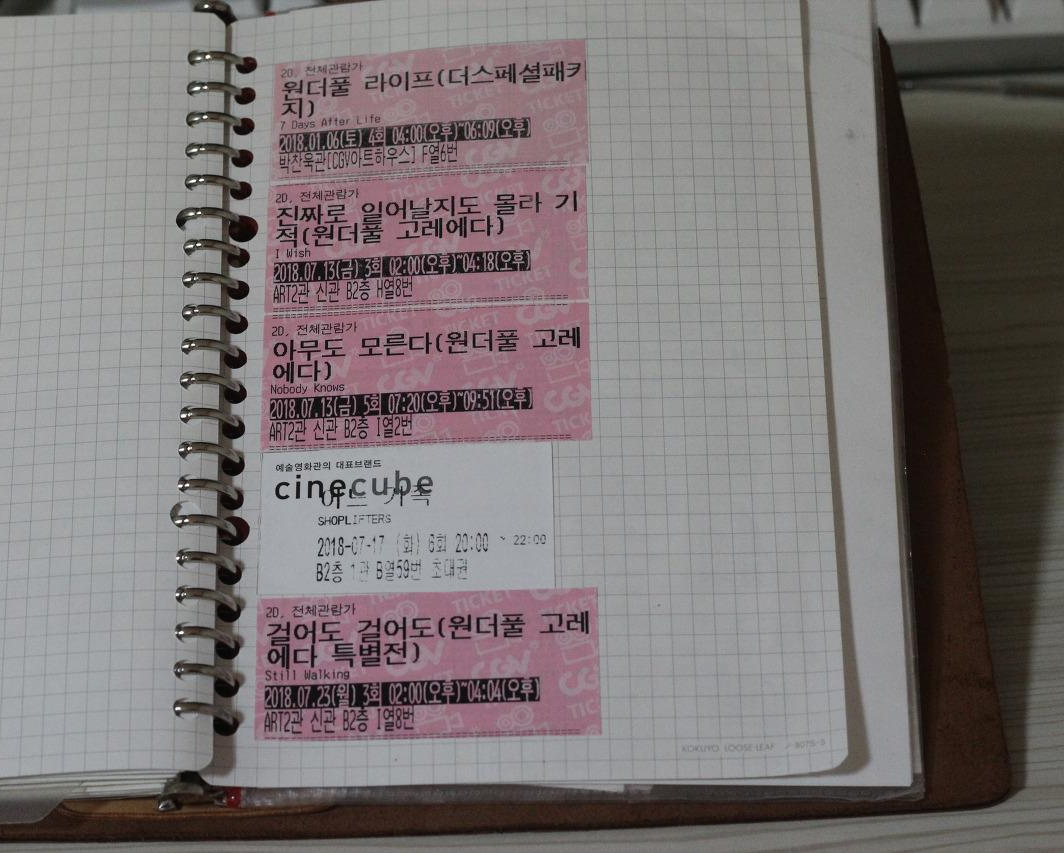 2D, 전체관람가
원더풀 라이프(더스페셜패키
지)
7 Days After Life
2018.01.06(토) 4회 04:00(오후)~06:09(오후)
박찬욱관[CGV아트하우스] F열6번
2D, 전체관람가
진짜로 일어날지도 몰라 기
적(원더풀 고레에다)
I Wish
2018.07.13(금) 3회 02:00(오후)~04:18(오후)
ART2관 신관 B2층 H열8번
2D, 전체관람가
아무도 모른다(원더풀 고레
에다)
Nobody Knows
2018.07.13(금) 5회 07:20(오후)~09:51(오후)
ART2관 신관 B2층 I열2번
예술영화관의 대표브랜드
cinecube
어느 가족
SHOPLIFTERS
2018-07-17 (화) 6회 20:00 ~ 22:00
B2층 1관 B열59번 초대권
2D, 전체관람가
걸어도 걸어도(원더풀 고레
에다 특별전)
Still Walking
2018.07.23(월) 3회 02:00(오후)~04:04(오후)
ART2관 신관 B2층 I열8번
KOKUYO LOOSE-LEAF